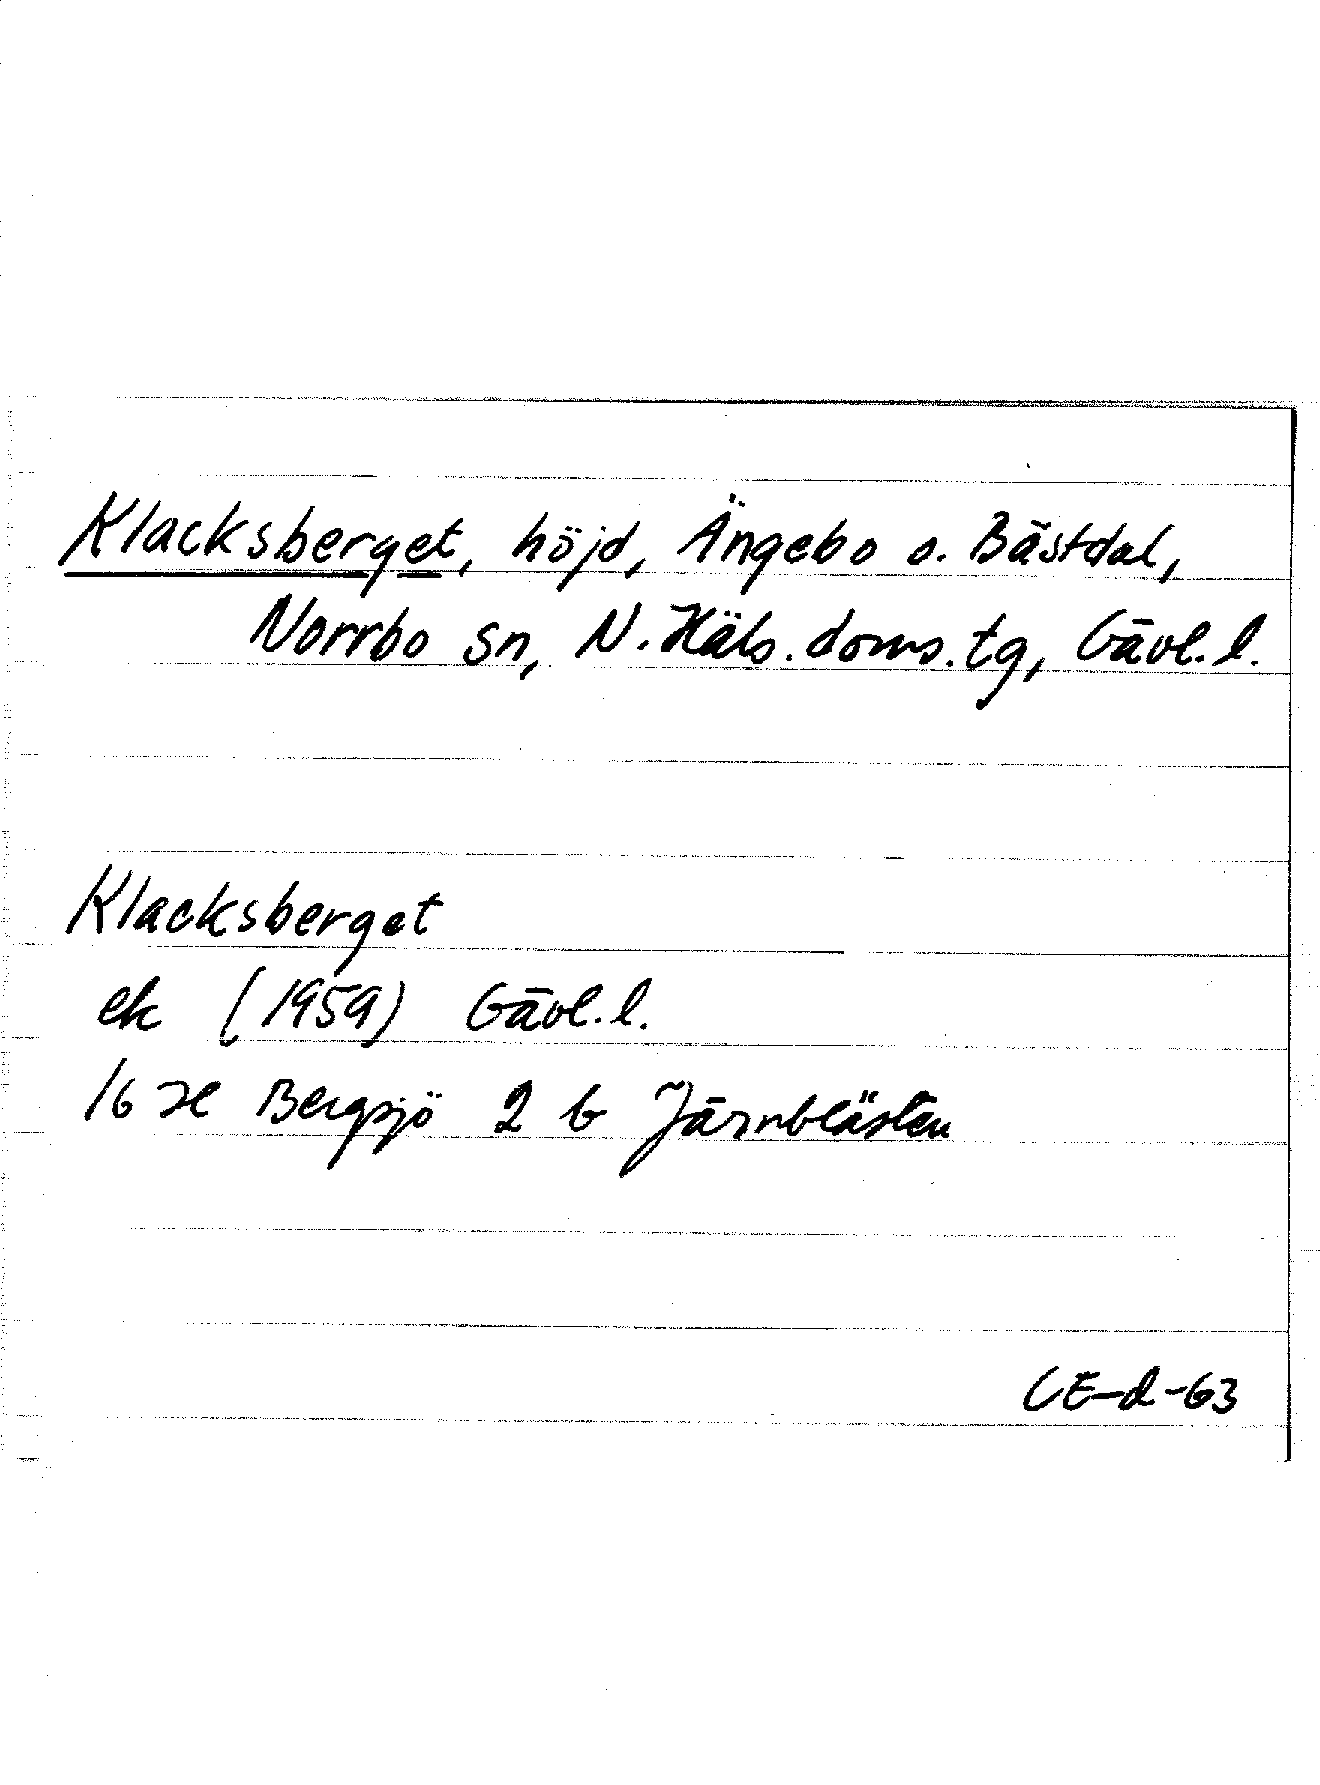 Klacksberget, höjd, Ängebo o. Bästdal,
Norrbo sn, N. Häls. doms. tg, Gävl. l.
Klacksberget
ek (1959) Gävl. l.
16 H Bergsjö 2 b Järnblästen
CE-d-63